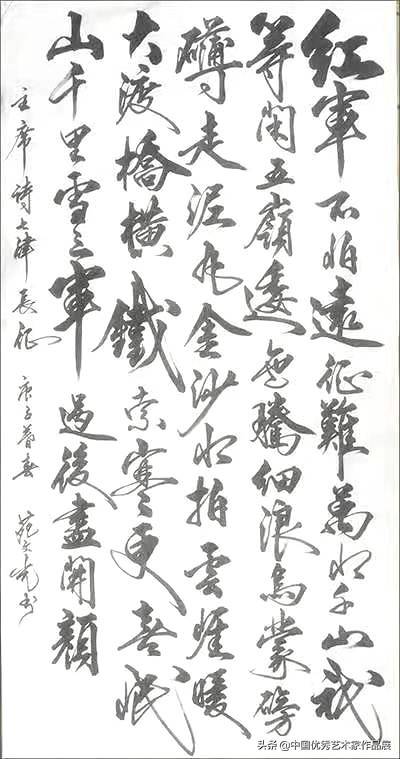 紅軍不怕遠征難萬水千山祇
等閑五嶺逶迤騰細浪烏蒙磅
礴走泥丸金沙水拍雲崖暖
大渡橋橫鐵索寒更喜岷
山千里雪三軍過後盡開顏
主席詩七律長征 庚子暮春 文光书
头条 @中国优秀艺术家作品展